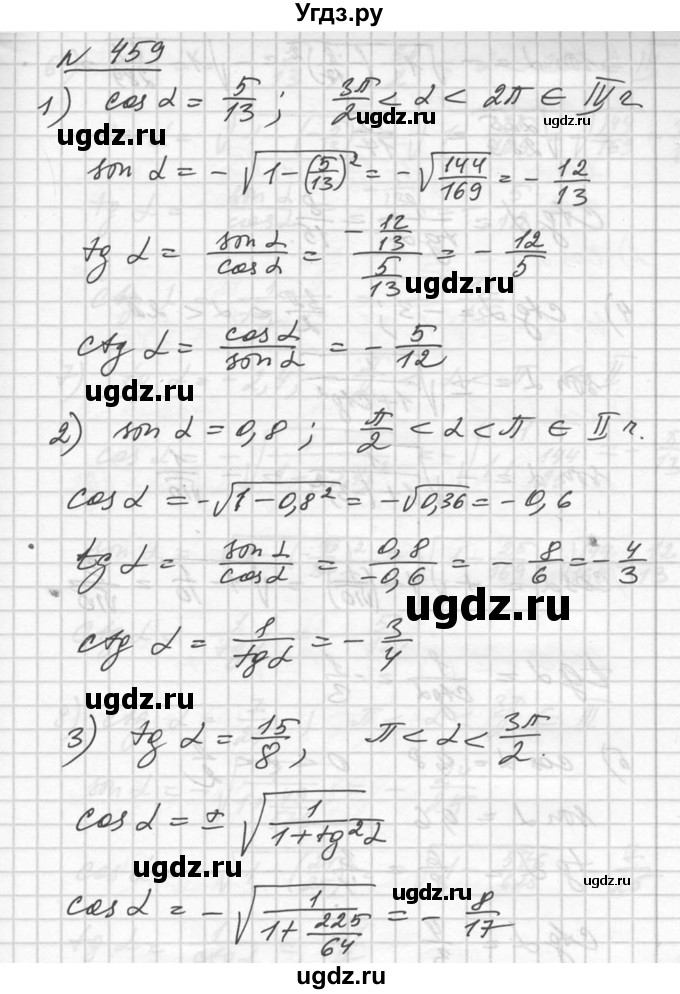 Угдз.ру
N 459
1) cos α = 5/13 ; 3π/2 < α < 2π ∈ IV ч.
ugdz.ru ugdz.ru ugdz.ru
sin α = -√(1-(5/13)²) = -√(144/169) = -12/13
tg α = sin α/cos α = (-12/13)/(5/13) = -12/5
ugdz.ru
ctg α = cos α/sin α = -5/12
ugdz.ru
2) sin α = 0,8 ; π/2 < α < π ∈ II ч.
cos α = -√(1-0,8²) = -√0,36 = -0,6
tg α = sin α/cos α = 0,8/-0,6 = -8/6 = -4/3
ugdz.ru
ctg α = 1/tg α = -3/4
ugdz.ru
3) tg α = 15/8, π < α < 3π/2.
cos α = ± √(1/(1+tg²α))
ugdz.ru ugdz.ru ugdz.ru
cos α = -√(1/(1+225/64)) = -8/17
ugdz.ru